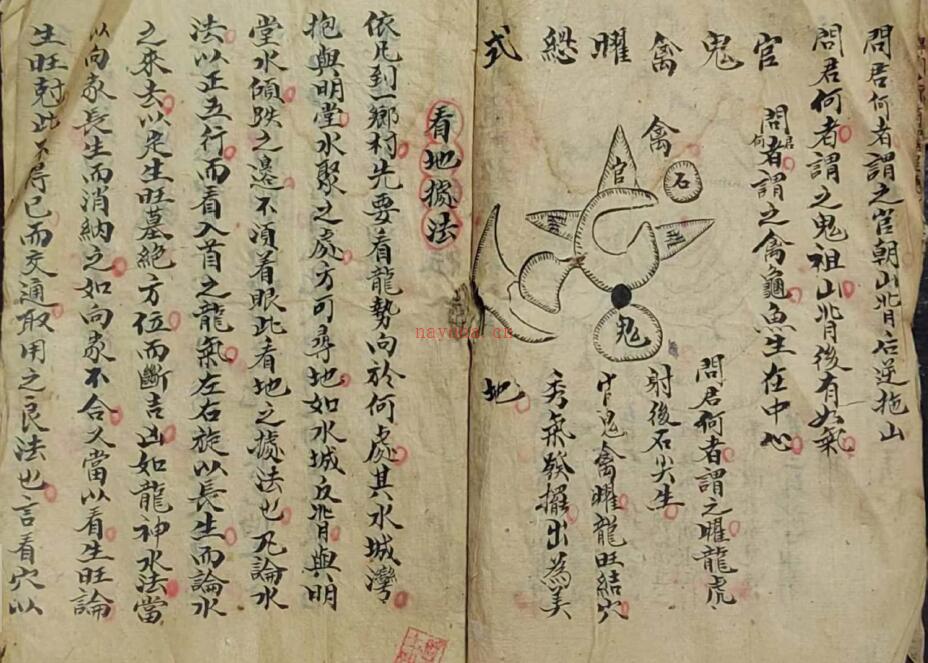 問君何者謂之官朝山背后逆拖山
問君何者謂之鬼祖山背後有如氣
問君何者謂之禽龜魚生在中心
問君何者謂之曜龍虎
射後石尖生
官鬼禽曜龍旺結穴
秀氣發擢出為美
地
官鬼禽曜總式
禽
石
官
鬼
看地㨿法
依凡到一鄉村先要看龍勢向於何處其水城灣
抱與明堂水聚之處方可尋地如水城反背與明
堂水傾跌之邊不須着眼此看地之㨿法也凡論水
法以正五行而看入首之龍氣左右旋以長生而論水
之來去以定生旺墓絕方位而斷吉凶如龍神水法當
以向家長生而消納之如向家不合又當以看生旺論
生旺剋此不得已而交通取用之良法也言看穴以
nayona.cn